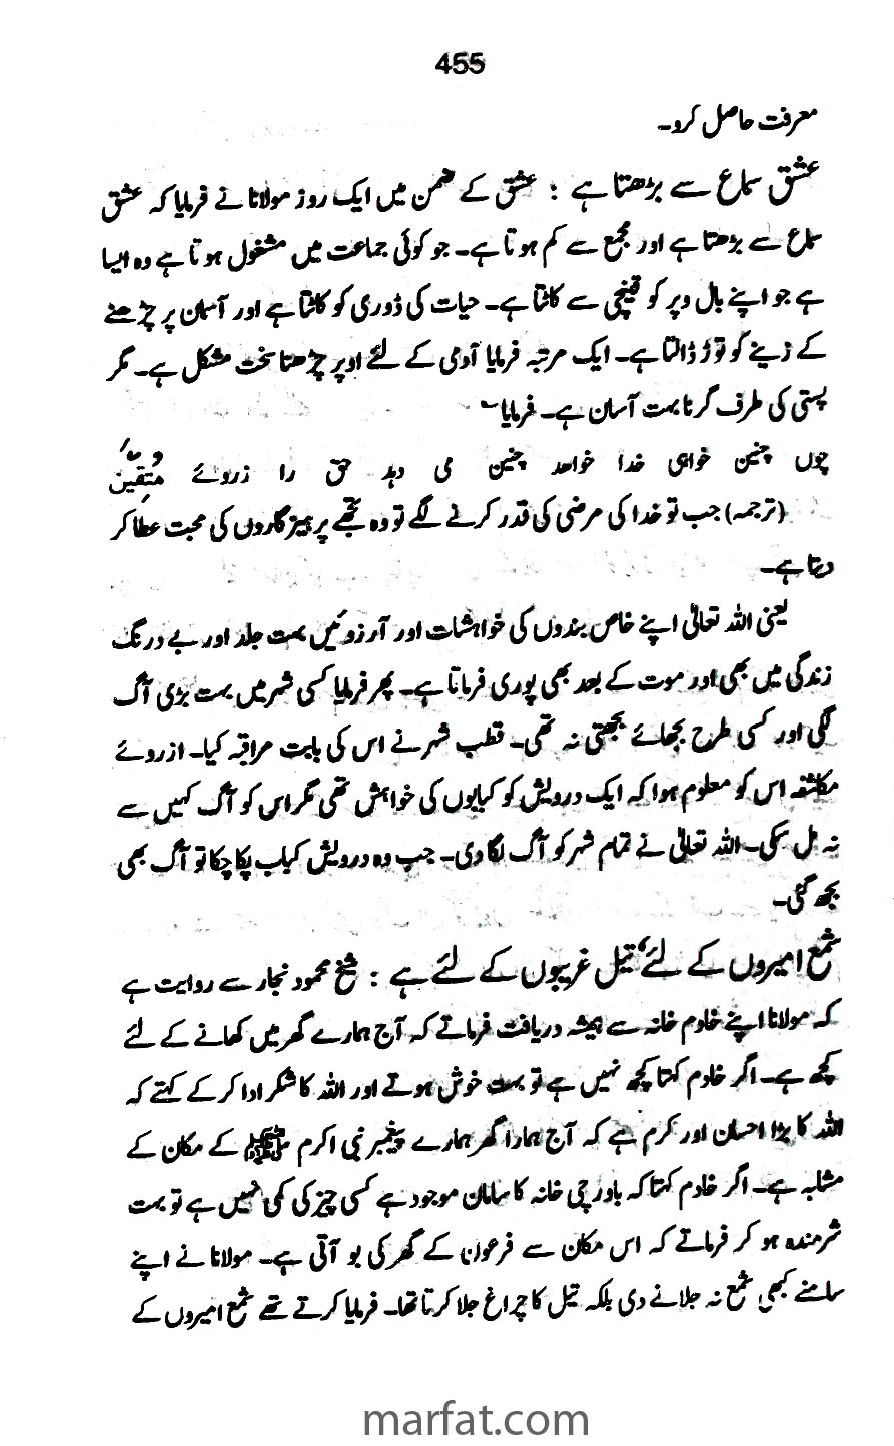 455
معرفت حاصل کرو۔
عشق سماع سے بڑھتا ہے : عشق کے ضمن میں ایک روز مولانا نے فرمایا کہ عشق
سماع سے بڑھتا ہے اور مجمع سے کم ہوتا ہے۔ جو کوئی جماعت میں مشغول ہوتا ہے وہ ایسا
ہے جو اپنے بال و پر کو قینچی سے کاٹتا ہے۔ حیات کی ڈوری کو کاٹتا ہے اور آسمان پر چڑھنے
کے زینے کو توڑ ڈالتا ہے۔ ایک مرتبہ فرمایا آدمی کے لئے اوپر چڑھنا سخت مشکل ہے۔ مگر
پستی کی طرف گرنا بہت آسان ہے۔ فرمایا
چوں چنین خواہی خدا خواهد چنین می دہد حق را زروئے متقین
(ترجمہ) جب تو خدا کی مرضی کی قدر کرنے لگے تو وہ تجھے پرہیزگاروں کی محبت عطا کر
دیتا ہے۔
یعنی اللہ تعالیٰ اپنے خاص بندوں کی خواہشات اور آرزوئیں بہت جلد اور بے درنگ
زندگی میں بھی اور موت کے بعد بھی پوری فرماتا ہے۔ پھر فرمایا کسی شہر میں بہت بڑی آگ
لگی اور کسی طرح بجھائے بجھتی نہ تھی۔ قطب شہر نے اس کی بابت مراقبہ کیا۔ ازروئے
مکاشفہ اس کو معلوم ہوا کہ ایک درویش کو کبابوں کی خواہش تھی مگر اس کو آگ کہیں سے
نہ مل سکی۔ اللہ تعالیٰ نے تمام شہر کو آگ لگا دی۔ جب وہ درویش کباب پکا چکا تو آگ بھی
بجھ گئی۔
شمع امیروں کے لئے، تیل غریبوں کے لئے ہے : شیخ محمود نجار سے روایت ہے
کہ مولانا اپنے خادم خانہ سے ہمیشہ دریافت فرماتے کہ آج ہمارے گھر میں کھانے کے لئے
کچھ ہے۔ اگر خادم کہتا کچھ نہیں ہے تو بہت خوش ہوتے اور اللہ کا شکر ادا کر کے کہتے کہ
اللہ کا بڑا احسان اور کرم ہے کہ آج ہمارا گھر ہمارے پیغمبر نبی اکرم ﷺ کے مکان کے
مشابہ ہے۔ اگر خادم کہتا کہ باورچی خانہ کا سامان موجود ہے کسی چیز کی کمی نہیں ہے تو بہت
شرمندہ ہو کر فرماتے کہ اس مکان سے فرعون کے گھر کی بو آتی ہے۔ مولانا نے اپنے
سامنے کبھی شمع نہ جلانے دی بلکہ تیل کا چراغ جلا کرتا تھا۔ فرمایا کرتے تھے شمع امیروں کے
marfat.com